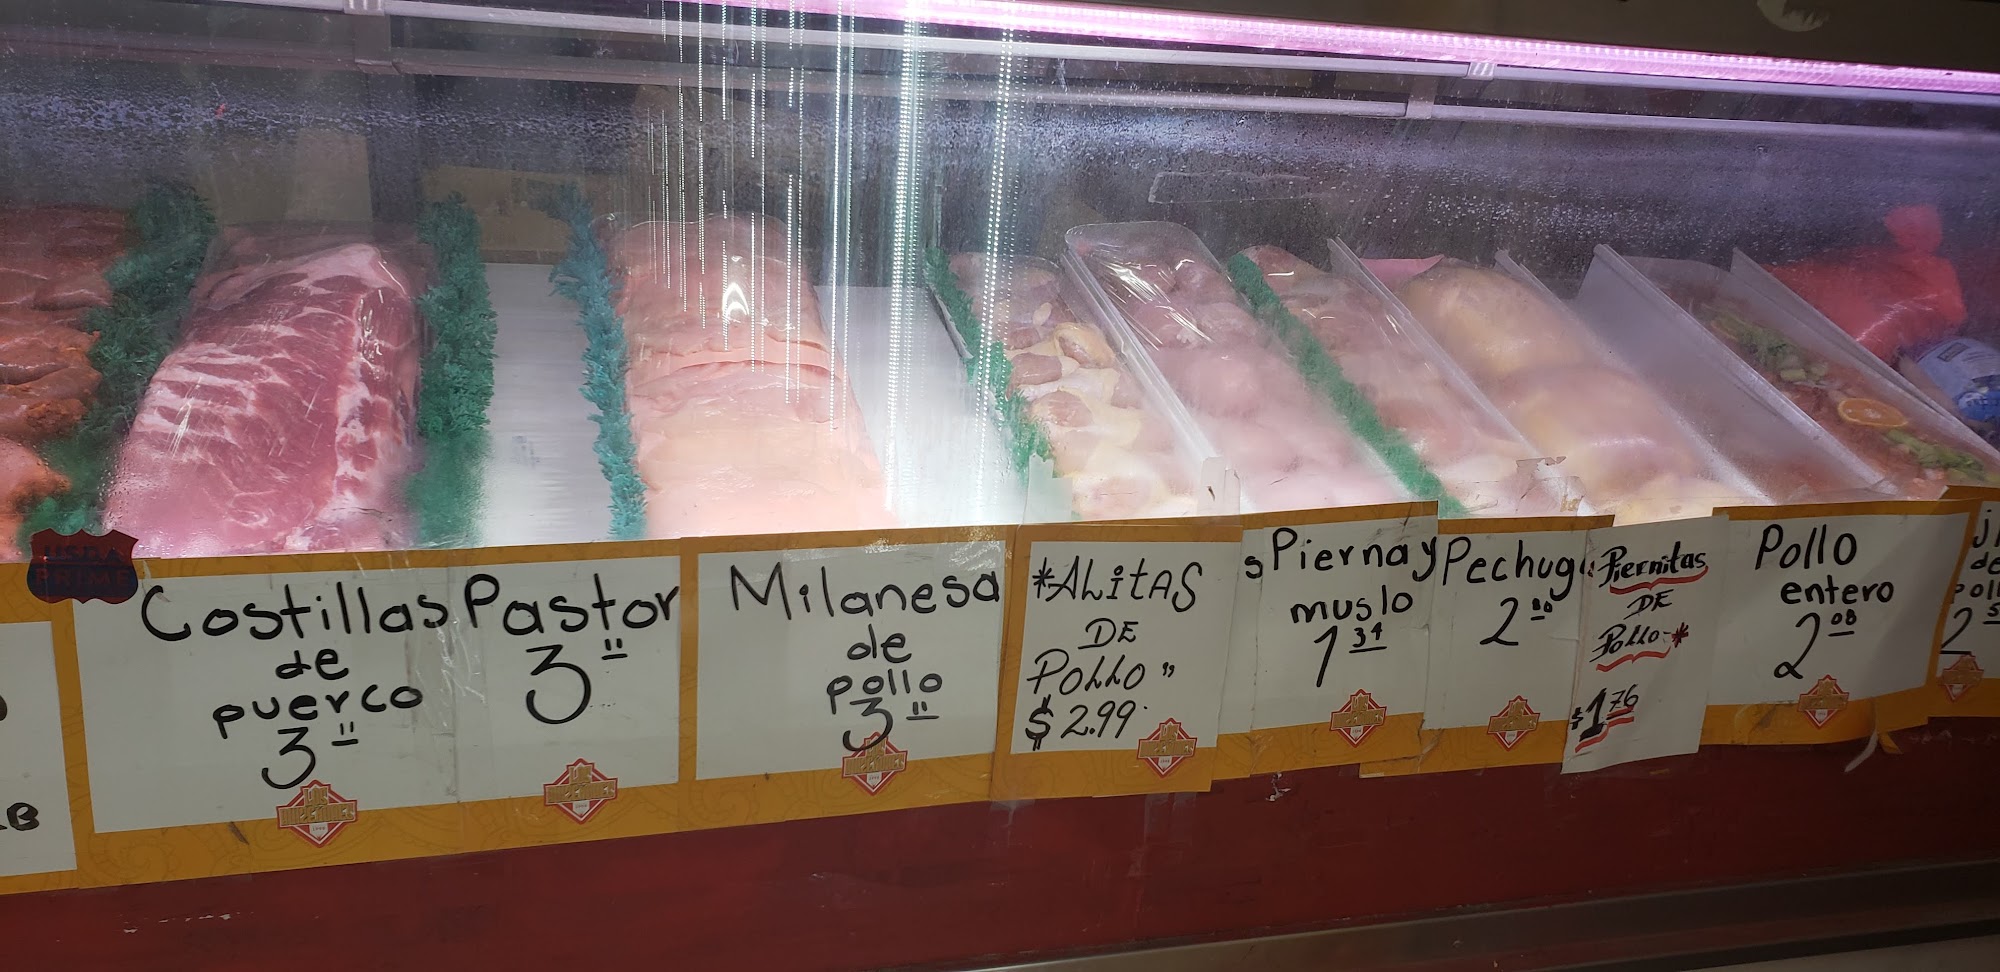 USDA
PRIME
LB
Costillas
de
puerco
3"
Pastor
3"
Milanesa
de
pollo
3"
*ALitAS
DE
POLLO"
$2.99
Pierna y
muslo
1 34
Pechuga
2 00
Piernitas
DE
Pollo*
$1 76
Pollo
entero
2 08
de
LOS
1996